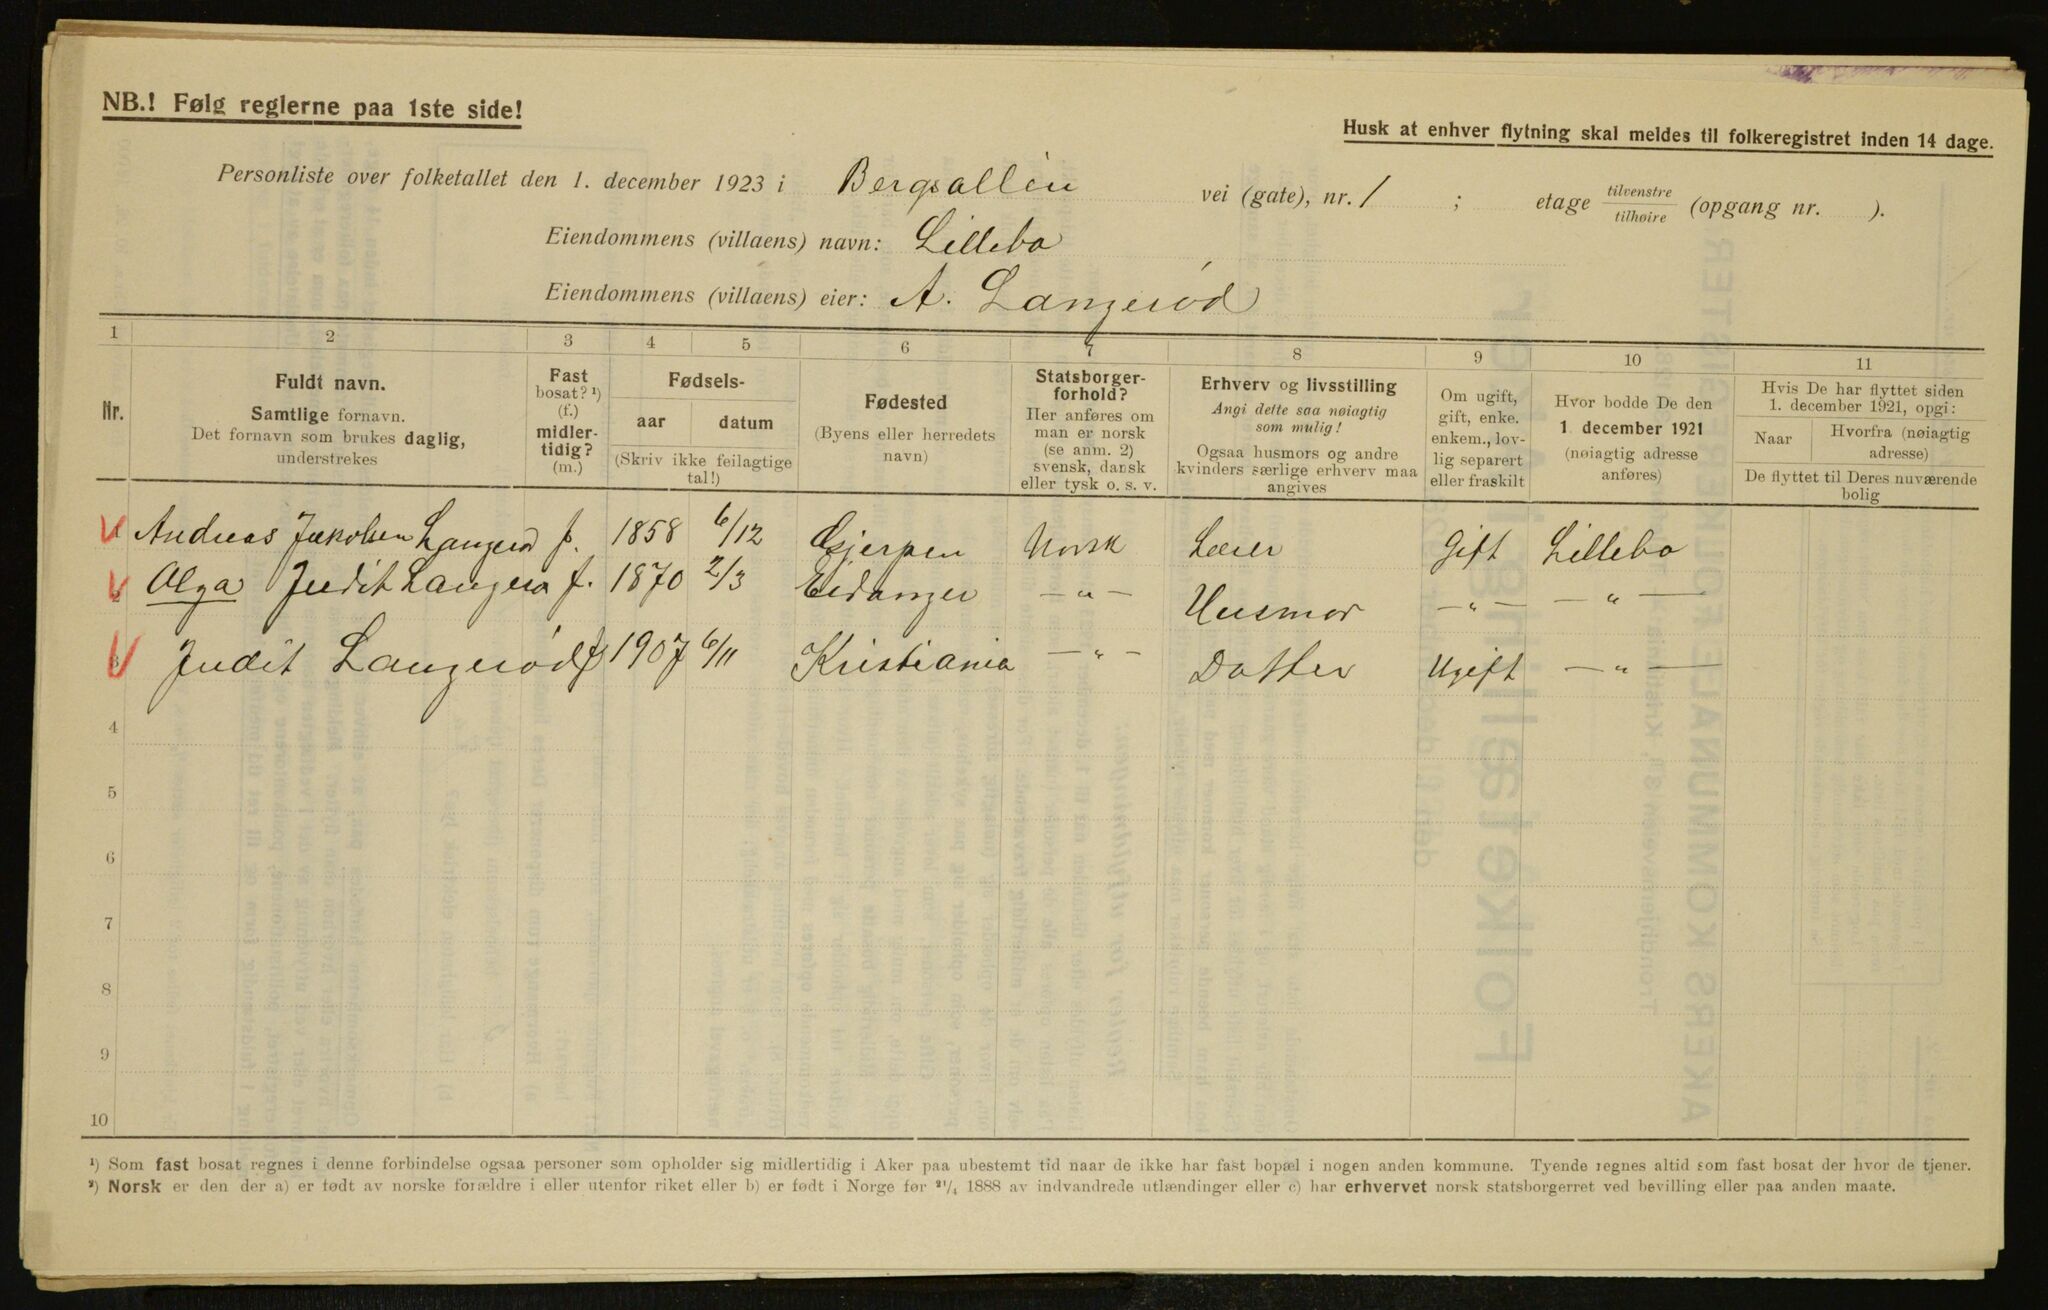 NB.! Følg reglerne paa 1ste side!
Husk at enhver flytning skal meldes til folkeregistret inden 14 dage.
Personliste over folketallet den 1. december 1923 i Bergsalléen vei (gate), nr. 1 ; etage tilvenstre / tilhøire (opgang nr. ).
Eiendommens (villaens) navn: Lillebo
Eiendommens (villaens) eier: A. Langerød
1 2 3 4 5 6 7 8 9 10 11
Nr.
Fuldt navn.
Samtlige fornavn.
Det fornavn som brukes daglig,
understrekes
Fast
bosat? ¹)
(f.)
midler-
tidig?
(m.)
Fødsels-
aar datum
(Skriv ikke feilagtige
tal!)
Fødested
(Byens eller herredets
navn)
Statsborger-
forhold?
Her anføres om
man er norsk
(se anm. 2)
svensk, dansk
eller tysk o. s. v.
Erhverv og livsstilling
Angi dette saa nøiagtig
som mulig!
Ogsaa husmors og andre
kvinders særlige erhverv maa
angives
Om ugift,
gift, enke.
enkem., lov-
lig separert
eller fraskilt
Hvor bodde De den
1 december 1921
(nøiagtig adresse
anføres)
Hvis De har flyttet siden
1. december 1921, opgi:
Naar Hvorfra (nøiagtig
adresse)
De flyttet til Deres nuværende
bolig
1 Andreas Jakobsen Langerød f. 1858 6/12 Gjerpen Norsk Lærer Gift Lillebo
2 Olga Judit Langerød f. 1870 2/3 Eidanger — " — Husmor — " — — " —
3 Judit Langerød f 1907 6/11 Kristiania — " — Datter Ugift — " —
4
5
6
7
8
9
10
¹) Som fast bosat regnes i denne forbindelse ogsaa personer som opholder sig midlertidig i Aker paa ubestemt tid naar de ikke har fast bopæl i nogen anden kommune. Tyende regnes altid som fast bosat der hvor de tjener.
²) Norsk er den der a) er født av norske forældre i eller utenfor riket eller b) er født i Norge før ²¹/₄ 1888 av indvandrede utlændinger eller c) har erhvervet norsk statsborgerret ved bevilling eller paa anden maate.